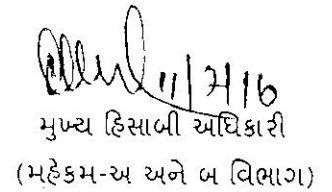 11/7/16
મુખ્ય હિસાબી અધિકારી
(મહેકમ-અ અને બ વિભાગ)